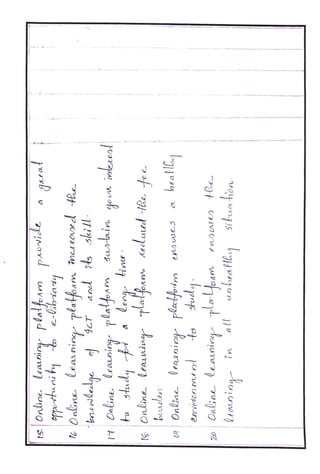 15. Online learning platform provide a great
opportunity to e-library
16 Online learning platform increased the
knowledge of ICT and its skill.
17. Online learning platform sustain your interest
to study for a long time.
18. Online learning platform reduced the fee
burden
19 Online learning platform ensures a healthy
environment to study.
20 Online learning platform ensures the
learning in all unhealthy situation